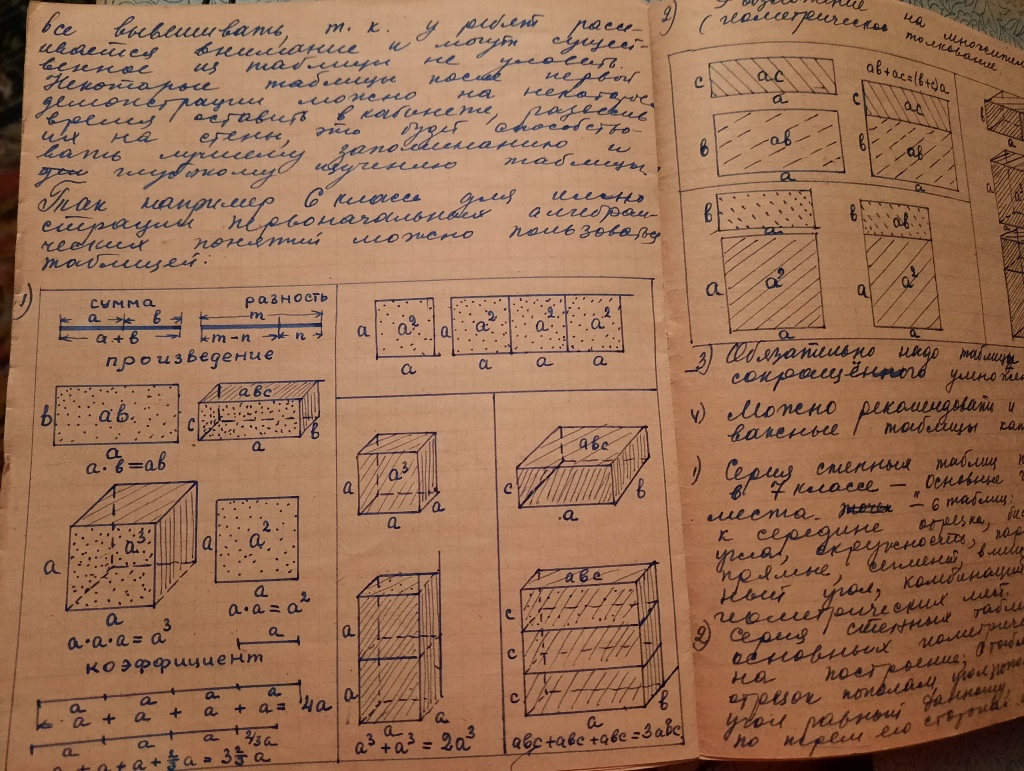 все вывешивать, т. к. у ребят рассе-
ивается внимание и могут сущест-
венное из таблицы не уловить.
Некоторые таблицы после первой
демонстрации можно на некоторое
время оставить в кабинете, развесив
их на стены, это будет способство-
вать лучшему запоминанию и
глубокому изучению таблицы.
Так например 6 класс для иллю-
страции первоначальных алгебраи-
ческих понятий можно пользоваться
таблицей:
1)
сумма
разность
a b
m
a+b
m-n n
произведение
b ab
a
a·b=ab
abc
c b
a
a³
a
a
a·a·a=a³
a a²
a
a·a=a²
a
коэффициент
a a a a
a + a + a + a = 4a
a a a 2/3a
a+a+a+2/3a=3 2/3 a
a a²
a
a a² a² a²
a a a
a a³
a a
abc
c b
a
a
a
a a
a³+a³=2a³
abc
c
c
c b
a
abc+abc+abc=3abc
2)
на множители
(геометрическое толкование
c ac
a
b ab
a
ab+ac=(b+c)a
c ac
b ab
a
b
a
a a²
a
b ab
a a²
a
3) Обязательно надо таблицы
сокращённого умноже
4) Можно рекомендовать и
важные таблицы как
1) Серия стенных таблиц
в 7 классе – основные
места – 6 таблиц:
к середине отрезка,
угла, окружность,
прямые, сегмент,
ный угол, комбинаций
геометрических мест.
(2) Серия стенных таблиц
основных геометриче
на построение:
отрезок пополам,
угол равный данному,
по трём его сторонам